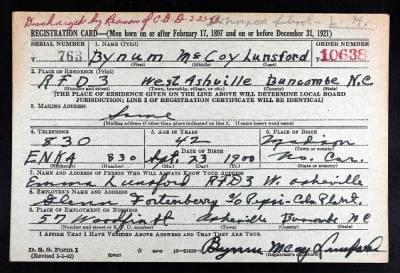 Discharged by Reason of C.D.D. 2-23-43
REGISTRATION CARD—(Men born on or after February 17, 1897 and on or before December 31, 1921)
SERIAL NUMBER 1. NAME (Print) ORDER NUMBER
T 763 Bynum McCoy Lunsford 10638
(First) (Middle) (Last)
2. PLACE OF RESIDENCE (Print)
RFD 3 West Ashville Buncombe N.C.
(Number and street) (Town, township, village, or city) (County) (State)
[THE PLACE OF RESIDENCE GIVEN ON THE LINE ABOVE WILL DETERMINE LOCAL BOARD
JURISDICTION; LINE 2 OF REGISTRATION CERTIFICATE WILL BE IDENTICAL]
3. MAILING ADDRESS
Same
[Mailing address if other than place indicated on line 2. If same insert word same]
4. TELEPHONE 5. AGE IN YEARS 6. PLACE OF BIRTH
830 42 Madison
DATE OF BIRTH (Town or county)
ENKA 830 23 1900 No. Car.
7. NAME AND ADDRESS OF PERSON WHO WILL ALWAYS KNOW YOUR ADDRESS
Emma Lunsford RFD3 W. Asheville
8. EMPLOYER'S NAME AND ADDRESS
Glenn Fortenberry c/o Pepsi-Cola Plant
9. PLACE OF EMPLOYMENT OR BUSINESS
Asheville Buncombe N.C
(Number and street or R. F. D. number) (Town) (County) (State)
I AFFIRM THAT I HAVE VERIFIED ABOVE ANSWERS AND THAT THEY ARE TRUE.
D. S. S. Form 1
Bynum McCoy Lunsford
(Registrant's signature)